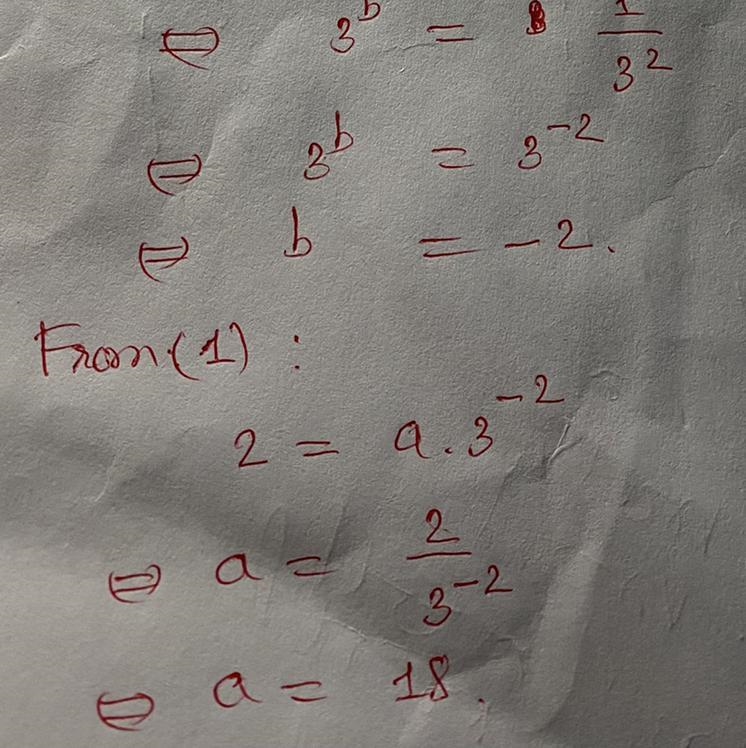 ⇔ 3^b = 1/3^2
⇔ 3^b = 3^-2
⇔ b = -2.
From (1) :
2 = a . 3^-2
⇔ a = 2/3^-2
⇔ a = 18.